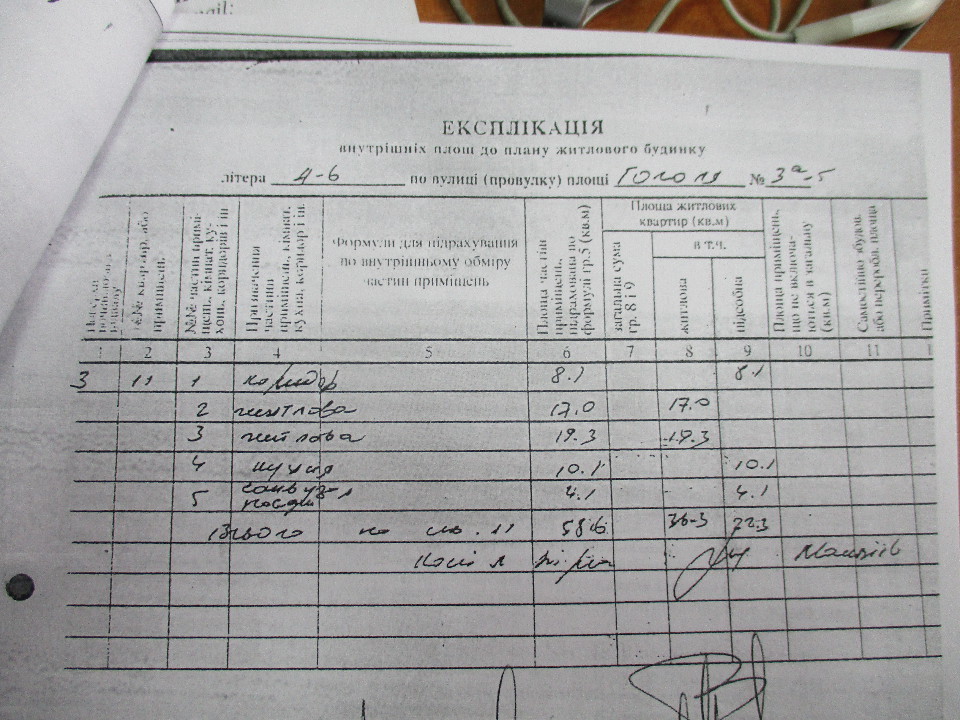 ail:
ЕКСПЛІКАЦІЯ
внутрішніх площ до плану житлового будинку
літера А-6 по вулиці (провулку) площі Гоголя № 3а-5
№№ квартир, або приміщень
№№ частин приміщень, кімнат, кухонь, коридорів і ін
Призначення частини приміщень, кімнат, кухня, коридор і ін.
Формули для підрахування
по внутрішньому обміру
частин приміщень
Площа частин приміщень, підрахована по формулі гр.5 (кв.м)
Площа житлових
квартир (кв.м)
загальна сума гр. 8 і 9
в т.ч.
житлова
підсобна
Площа приміщень, що не включаються в загальну (кв.м)
Самостійно збудов. або переробл. площа
Примітки
1 2 3 4 5 6 7 8 9 10 11 1
3 11 1 коридор 8.1 8.1
2 житлова 17.0 17.0
3 житлова 19.3 19.3
4 кухня 10.1 10.1
5 4.1 4.1
Всього по кв. 11 58.6 36.3 22.3
Копія вірна